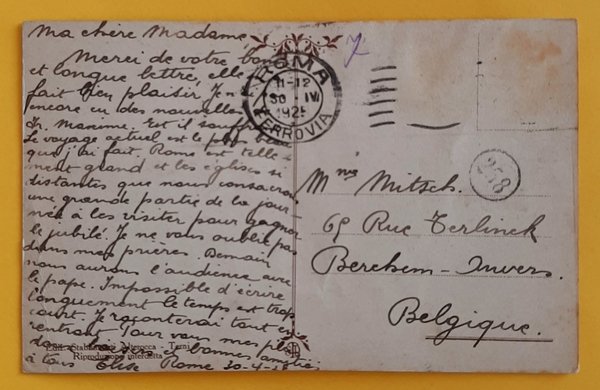 Ma chère Madame,
Merci de votre bonne
et longue lettre, elle
fait bien plaisir. J'en
encore eu des nouvelles
Fr. Maxime. Est il
Le voyage actuel est le plus beau
que j'ai fait. Rome est telle-
ment grand et les églises si
distantes que nous consacrons
une grande partie de la jour-
née à les visiter pour gagner
le jubilé. Je ne vous oublie pas
dans mes prières. Demain
nous aurons l'audience avec
le pape. Impossible d'écrire
longuement le temps est trop
court. Je raconterai tout en
rentrant. Pour vous mes plus
doux baisers et bonnes amitiés
à tous Elise Rome 30-4-25
Ediz. Stabilimento Alterocca - Terni
Riproduzione interdetta
ROMA
11-12
30 IV
1925
FERROVIA
258
Mme Mitsch.
65 Rue Terlinck
Berchem-Anvers.
Belgique.